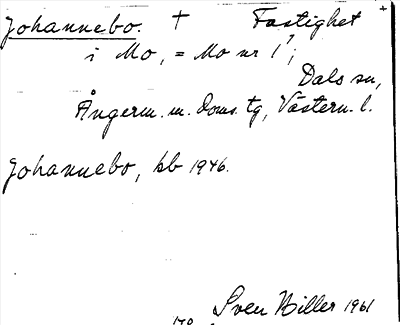 Johannebo. † Fastighet
i Mo, = Mo nr 1⁷;
Dals sn,
Ångerm. m. doms. tg, Västern. l.
Johannebo, kb 1946.
Sven Biller 1961